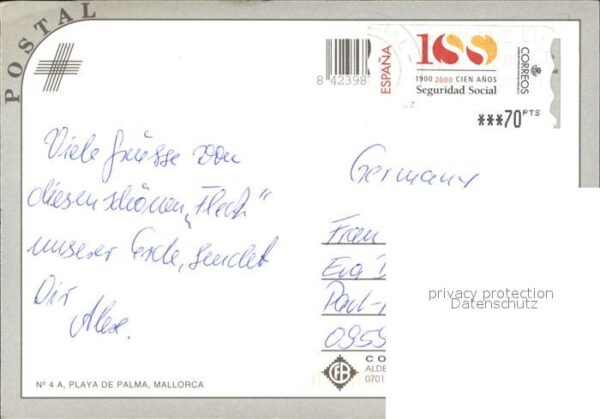 POSTAL
8 42398
ESPAÑA
100
1900 2000 CIEN AÑOS
Seguridad Social
CORREOS
***70 PTS
Viele Grüsse von
diesem schönen „Fleck“
unserer Erde, sendet
Dir
Alex.
Germany
Frau
Eva
Paul-
0955
privacy protection
Datenschutz
CO
ALDE
0701
Nº 4 A, PLAYA DE PALMA, MALLORCA